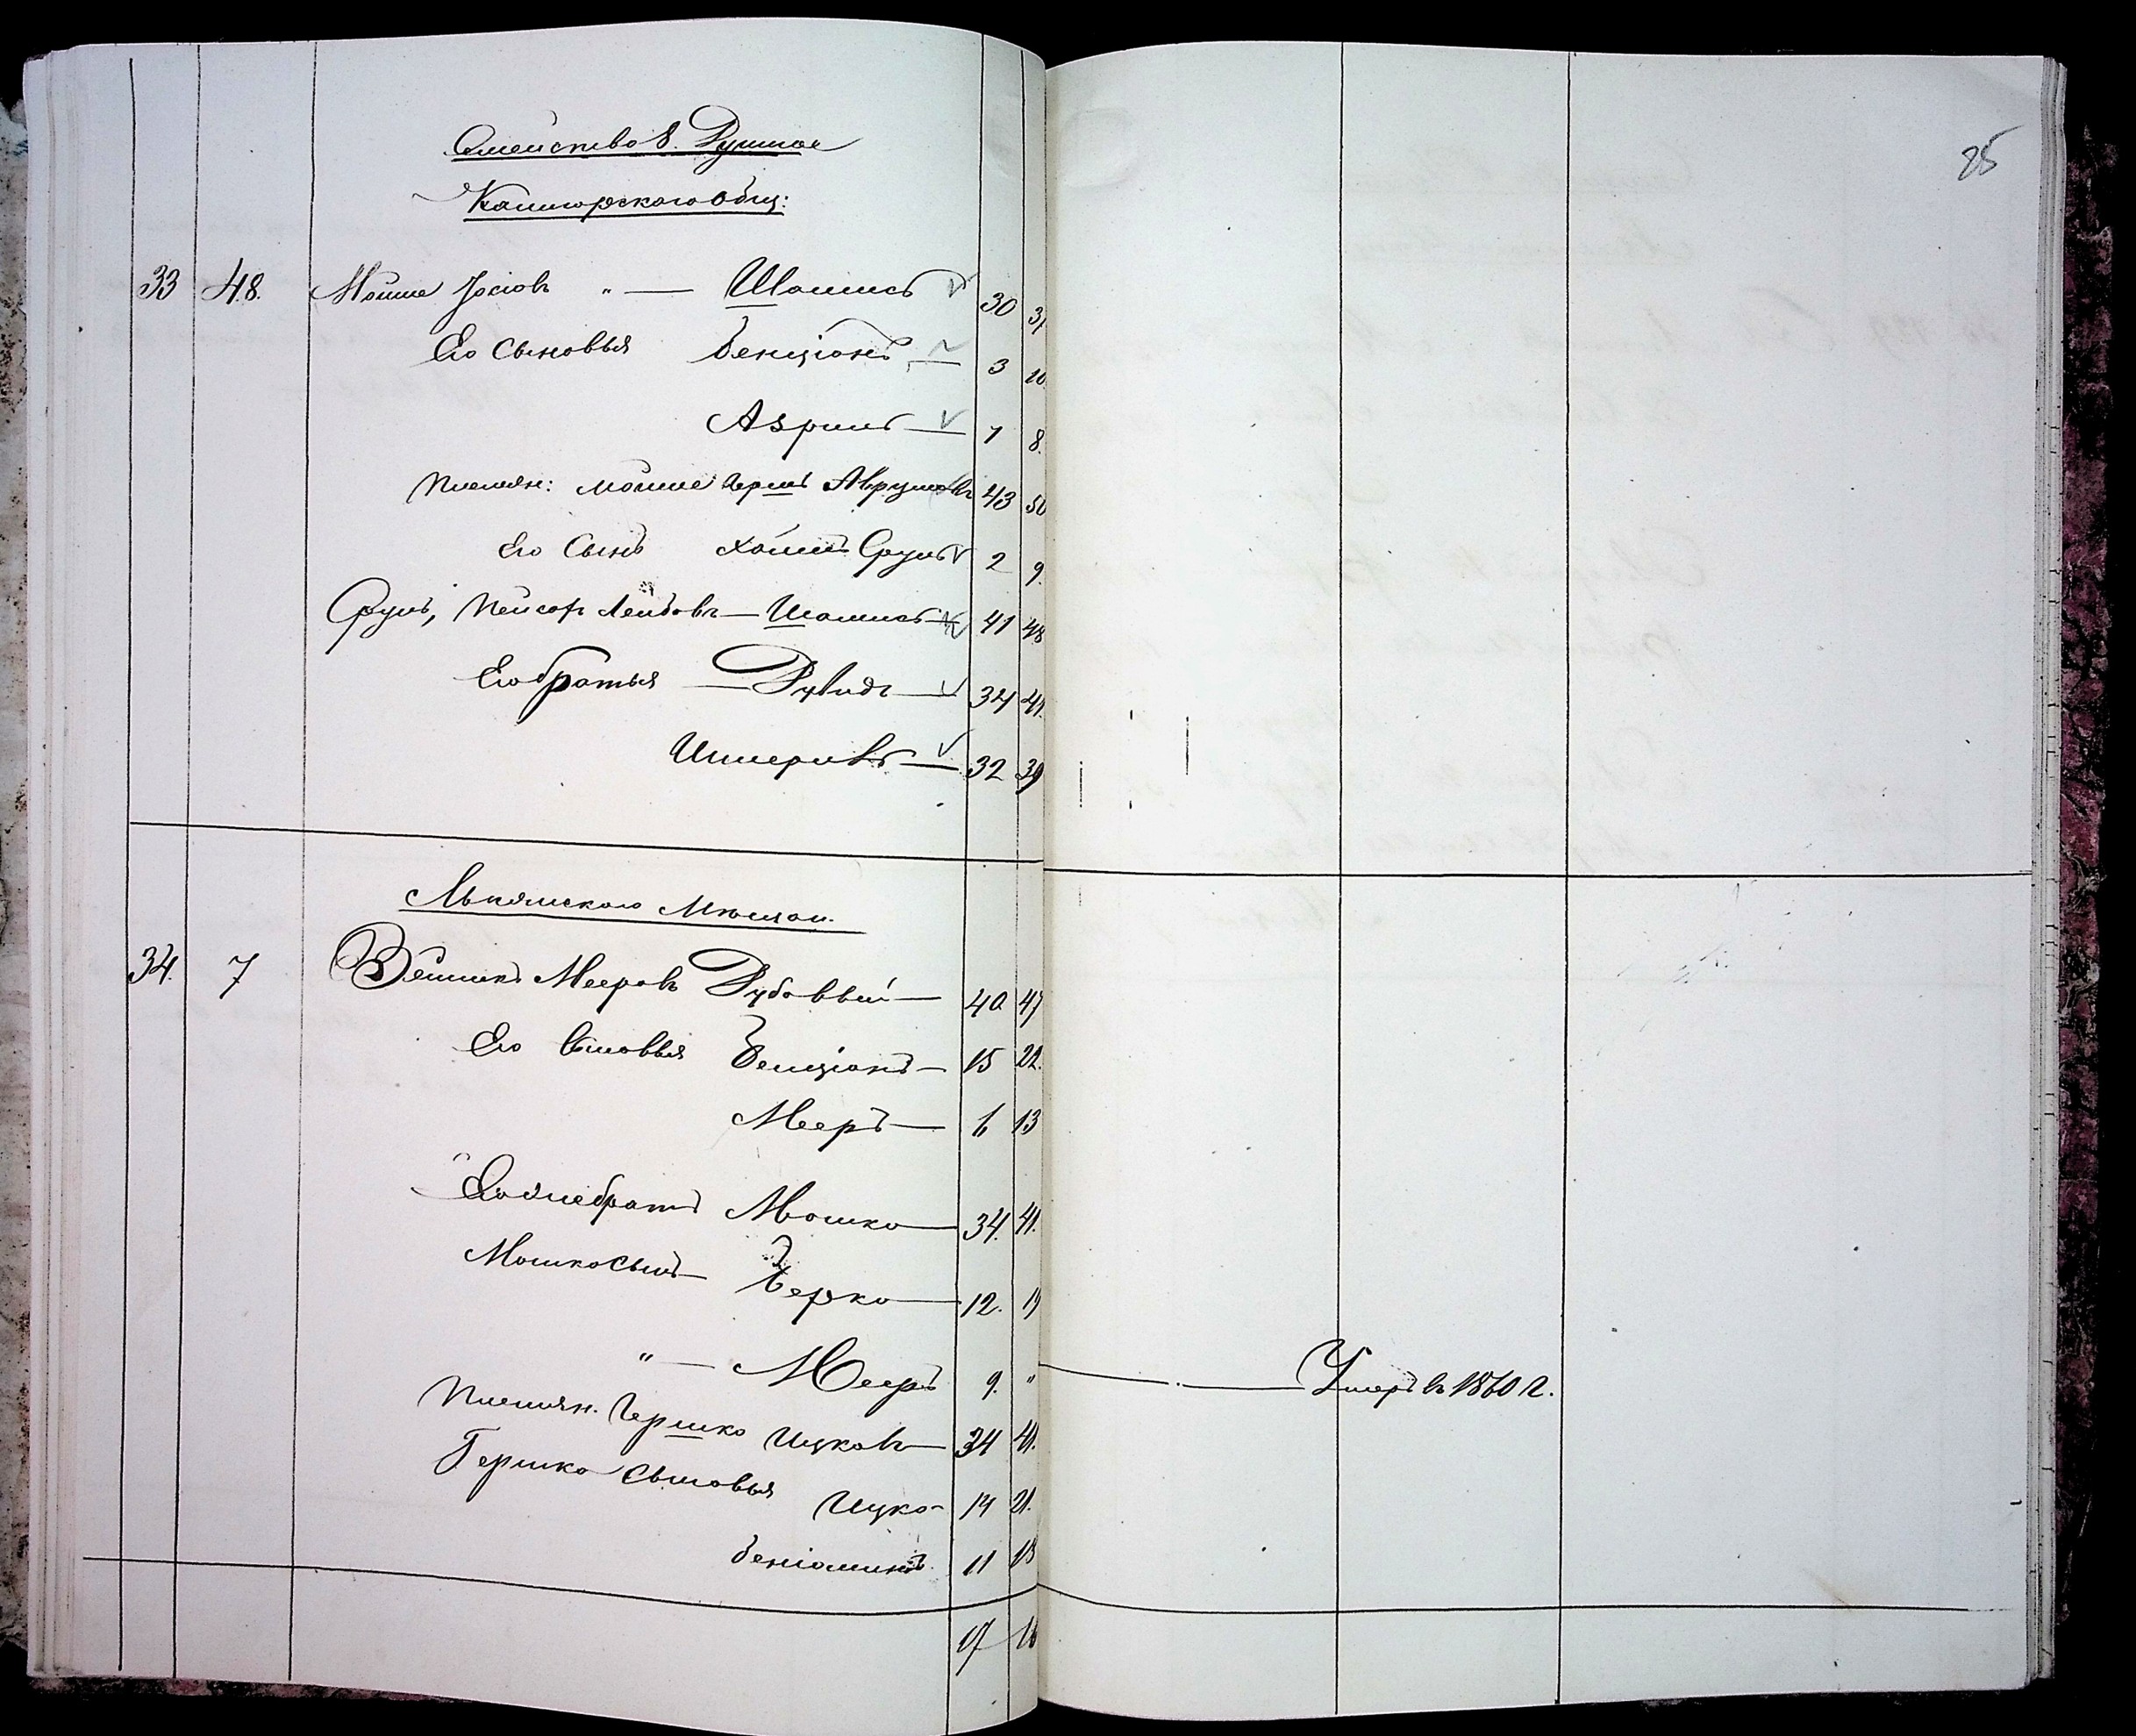 25
Семейство 8. Душное
Кашгорского Общ:
33 48. Мошие Іосіовъ " — Шамисъ 30 37
Его Сыновья Бенціонъ — 3 10.
Азриль — 1 8.
Племян: Мошие Герш Аврумовъ 43 50
Его Сынъ Хаимъ Сруль 2 9.
Сруль, Пейсах Лейбовъ — Шамисъ 41 48
Его братья — Рувинъ — 34 41.
Шмеривъ — 32 39
Мещан.
34. 7 Мееровъ Дубовый — 40 47
Его Сыновья Бенціонъ — 15 22.
Мееръ — 6 13
Его же братъ Мошко — 34. 41.
Мошко сынъ — Берко — 12. 19
" — Мееръ 9. " — Умеръ въ 1860 г.
Племян. Гершко Ицковъ — 34 41.
Гершко Сыновья Ицко - 14 21.
Беніоминъ. 11 18
17 16